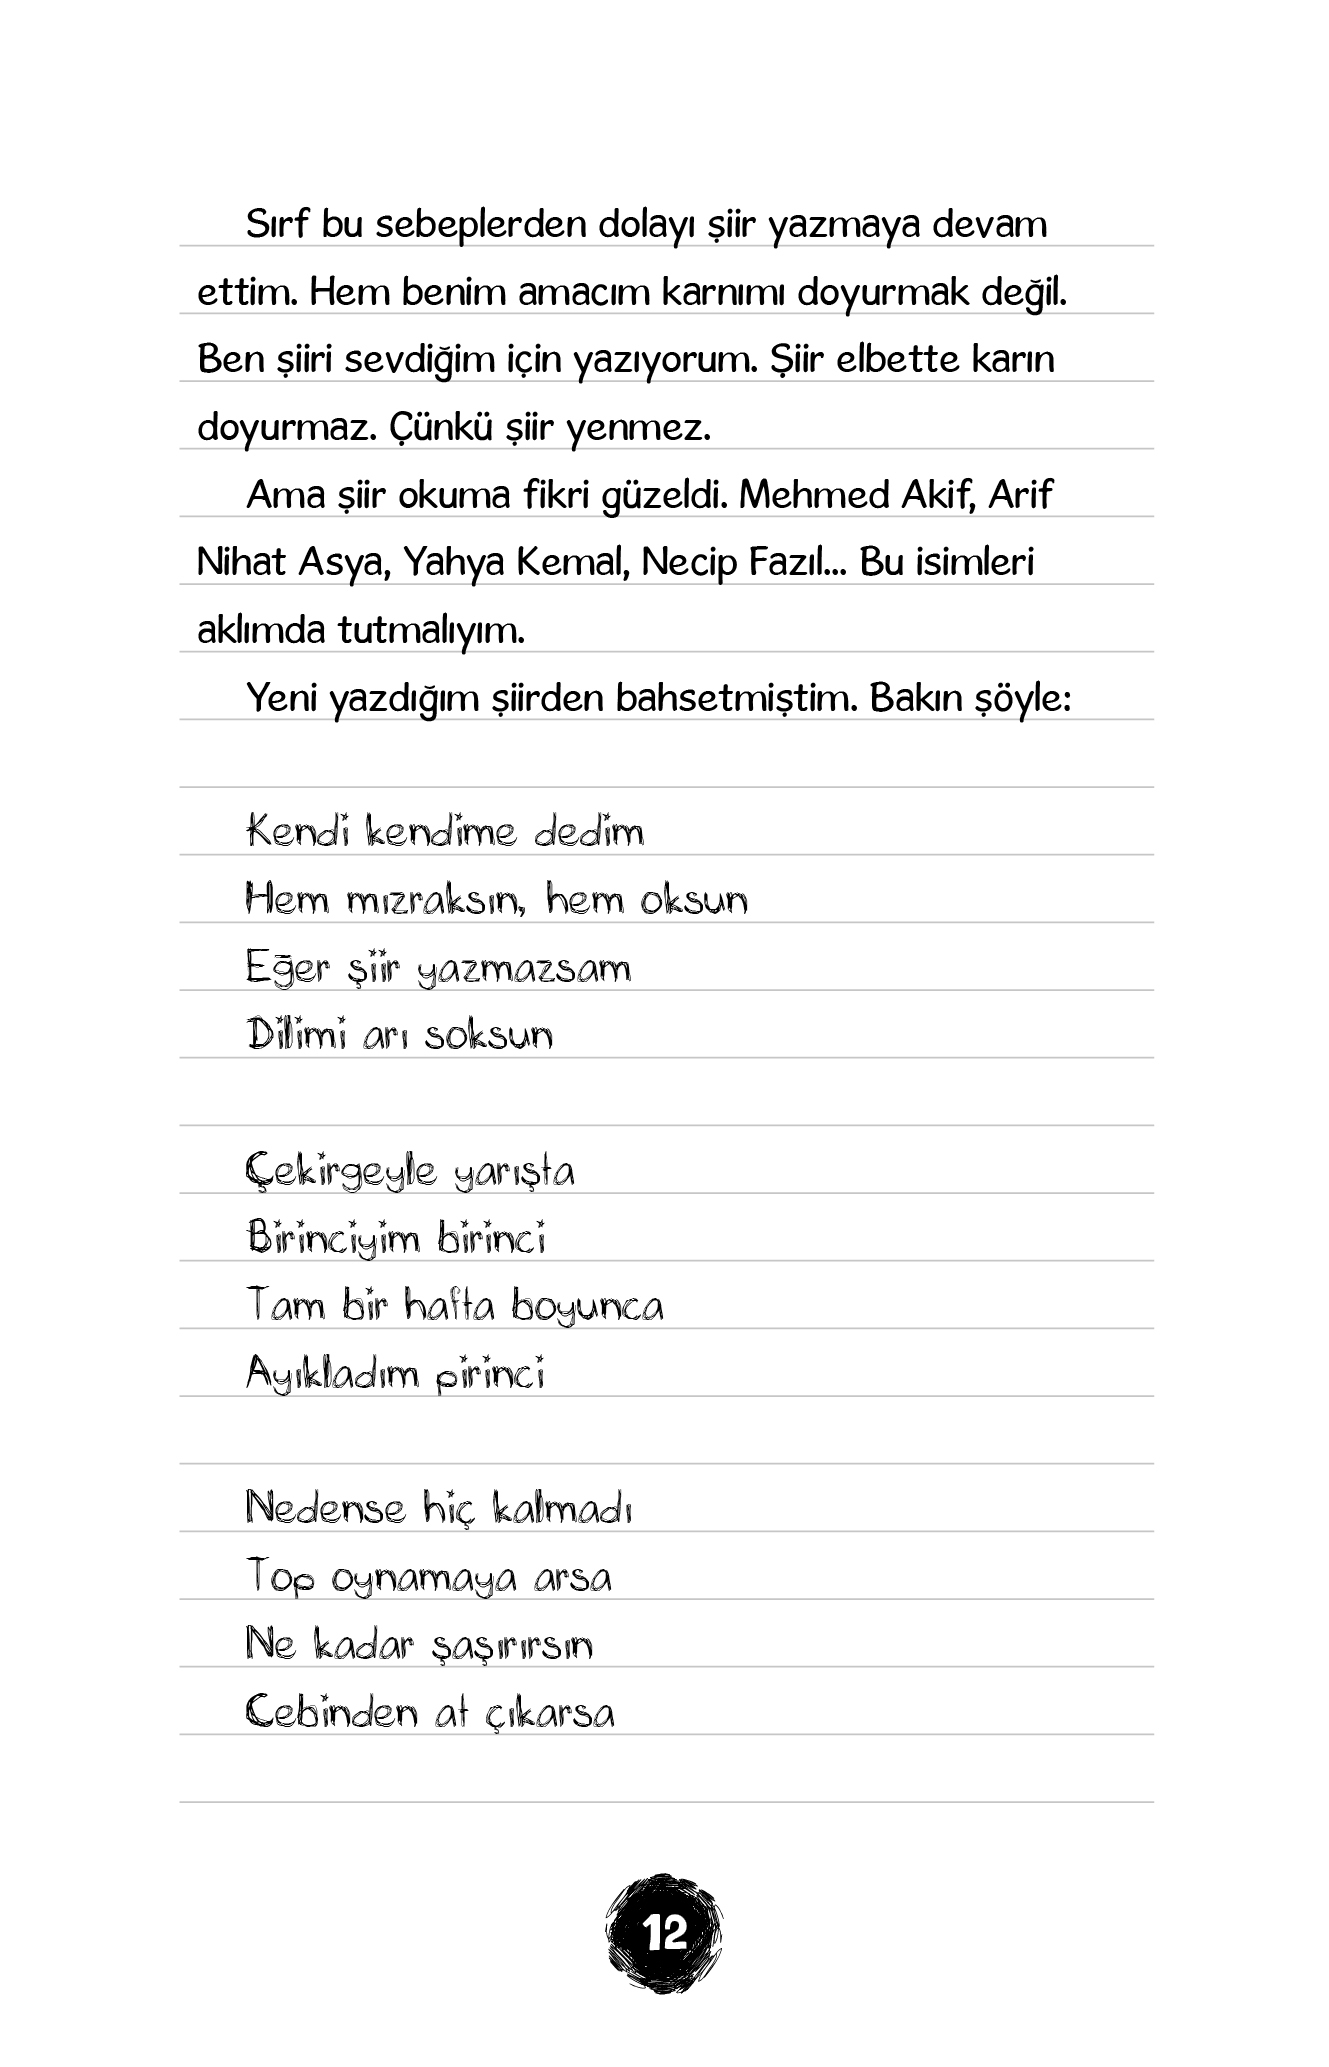 Sırf bu sebeplerden dolayı şiir yazmaya devam
ettim. Hem benim amacım karnımı doyurmak değil.
Ben şiiri sevdiğim için yazıyorum. Şiir elbette karın
doyurmaz. Çünkü şiir yenmez.
Ama şiir okuma fikri güzeldi. Mehmed Akif, Arif
Nihat Asya, Yahya Kemal, Necip Fazıl... Bu isimleri
aklımda tutmalıyım.
Yeni yazdığım şiirden bahsetmiştim. Bakın şöyle:
Kendi kendime dedim
Hem mızraksın, hem oksun
Eğer şiir yazmazsam
Dilimi arı soksun
Çekirgeyle yarışta
Birinciyim birinci
Tam bir hafta boyunca
Ayıkladım pirinci
Nedense hiç kalmadı
Top oynamaya arsa
Ne kadar şaşırırsın
Cebinden at çıkarsa
12